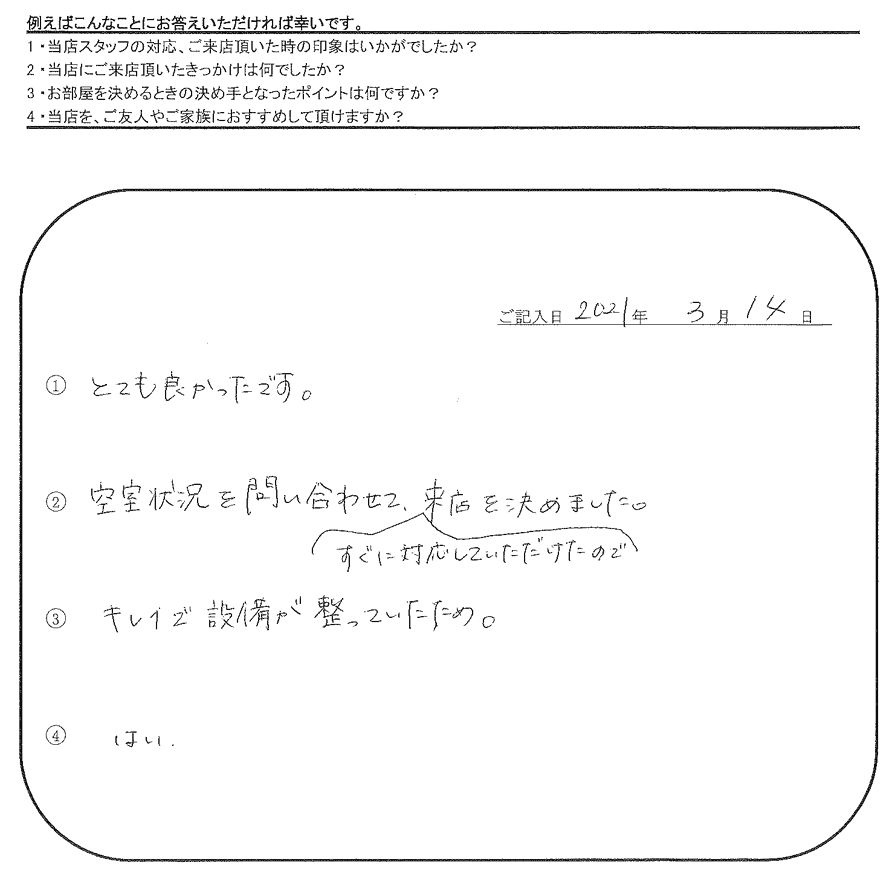 例えばこんなことにお答えいただければ幸いです。
1・当店スタッフの対応、ご来店頂いた時の印象はいかがでしたか？
2・当店にご来店頂いたきっかけは何でしたか？
3・お部屋を決めるときの決め手となったポイントは何ですか？
4・当店を、ご友人やご家族におすすめして頂けますか？
ご記入日 2021年 3月 14日
① とても良かったです。
② 空室状況を問い合わせて、来店を決めました。
すぐに対応していただけたので
③ キレイで設備が整っていたため。
④ はい.